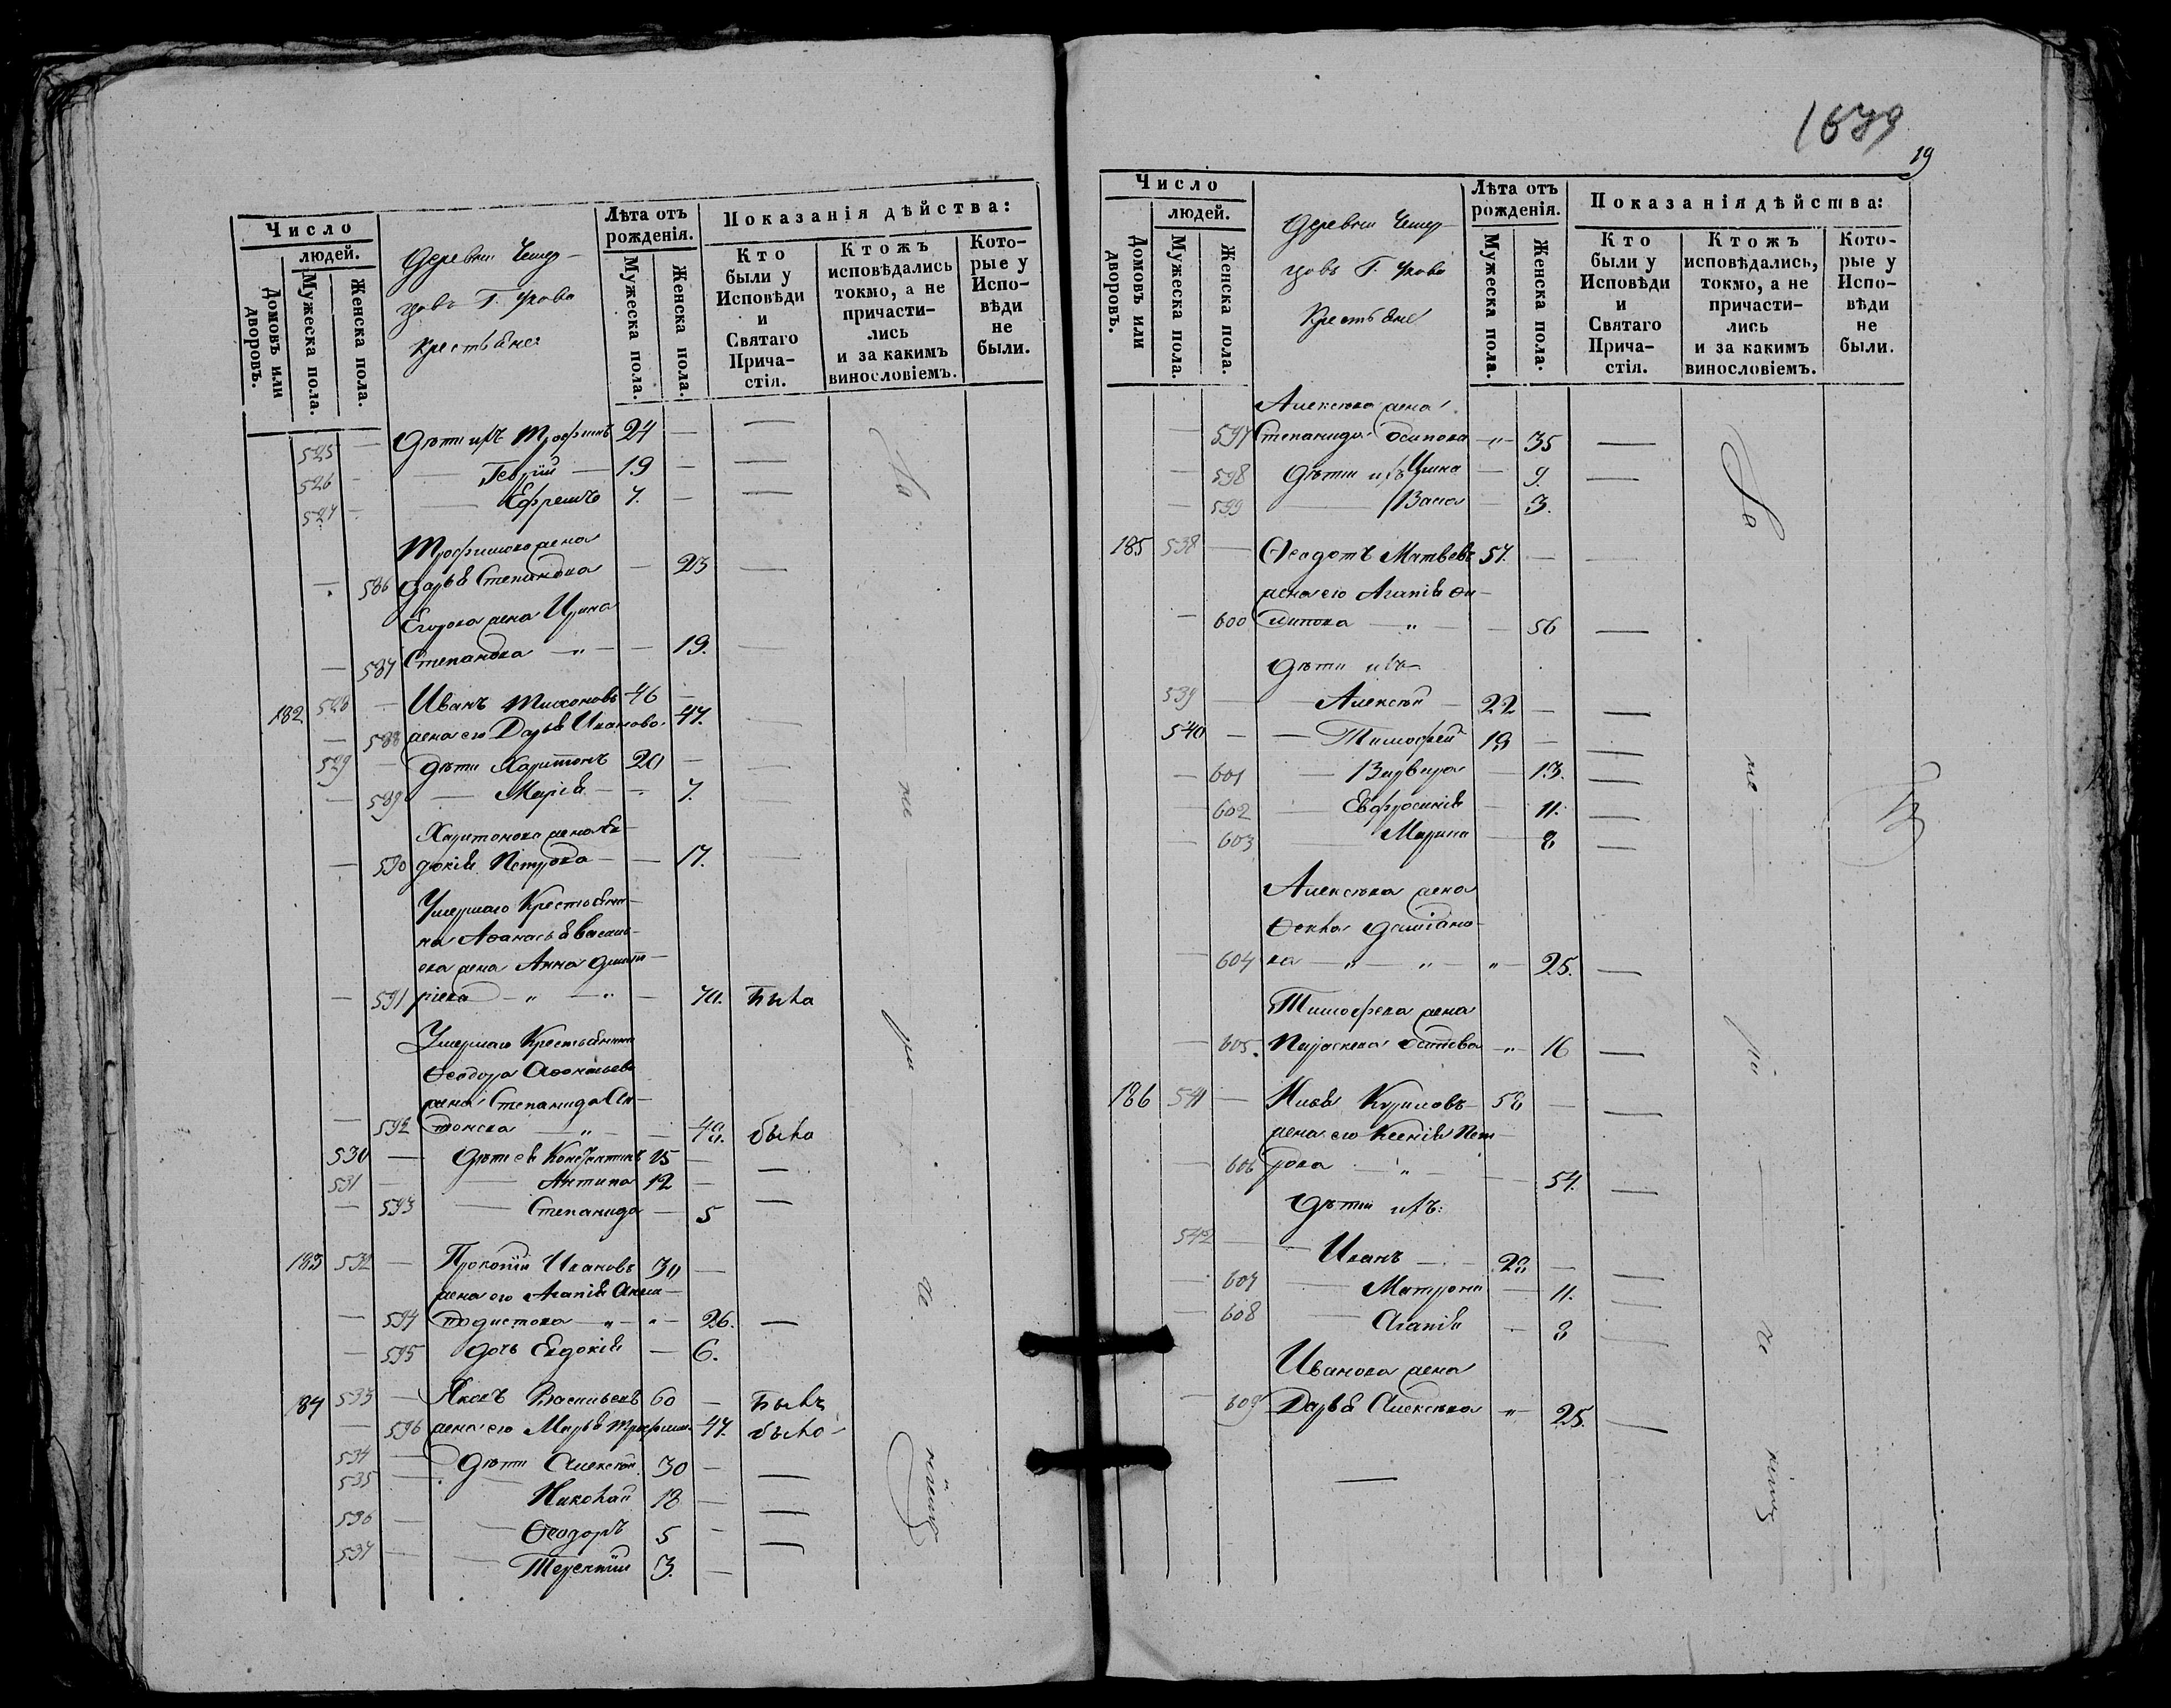 Число
людей.
Домовъ или дворовъ.
Мужеска пола.
Женска пола.
Деревни
Г.
Крестьяне
Лѣта отъ рожденія.
Мужеска пола.
Женска пола.
Показанія дѣйства:
Кто были у Исповѣди и Святаго Причастія.
Ктожъ исповѣдались токмо, а не причастились и за какимъ винословіемъ.
Которые у Исповѣди не были.
525 — Дѣти ихъ Трофимъ 24 — —
526 — — Георгій — 19 — —
527 — — Ефремъ 7. — —
Трофимова жена
— 586 Дарья Степанова — 23 —
Егорова жена Ирина
— 587 Степанова — " — — 19. —
182 528 — Иванъ Тихоновъ 46 —
— 588 жена его Дарья Иванова 47. —
529 — Дѣти Харитонъ 20 —
— 589 — Марія — 7. —
Харитонова жена Ев-
— 590 докія Петрова — — 17. —
Умершаго Крестьяни-
на Аѳанасья Василь-
ева жена Анна Димит-
— 591 ріева — " — " — 70. Была
Умершаго Крестьянина
Ѳеодора Аѳонасьева
жена Степанида Ан-
— 592 тонова — " — 40. была
530 — Дѣти ея Константинъ 15 — —
531 — — Антипа 12 —
— 593 — Степанида — 5 —
183 532 — Прокопій Ивановъ 30 —
жена его Агапія Анем-
— 594 подистова — " — " — 26. —
— 595 дочь Евдокія — 6.
184 533 — Яковъ Васильевъ 60 — Былъ
— 596 жена его Марья Трофим. 47. была
534 — Дѣти Алексѣй 30 — —
535 — Николай 18 — —
536 — — Ѳеодоръ 5 — —
537 — — Терентій 3. —
1679
19
Число
людей.
Домовъ или дворовъ.
Мужеска пола.
Женска пола.
Деревни
Г.
Крестьяне
Лѣта отъ рожденія.
Мужеска пола.
Женска пола.
Показанія дѣйства:
Кто были у Исповѣди и Святаго Причастія.
Ктожъ исповѣдались, токмо, а не причастились и за какимъ винословіемъ.
Которые у Исповѣди не были.
Алексѣева жена
— 597 Степанида Осипова — " — 35 —
— 598 Дѣти ихъ Ирина — 9. —
— 599 — Васса — 3.
185 538 — Ѳеодотъ Матвѣевъ 57. — —
жена его Агапія Фи-
— 600 липова — " — — 56 —
Дѣти ихъ
539 — Алексѣй — 22 — —
540 — — Тимофей 19 — —
— 601 — Варвара — 13. —
— 602 — Евфросинія — 11. —
— 603 — Марина — 8 —
Алексѣева жена
Ѳекла Даміано-
— 604 ва — " — " — " — 25. —
Тимофеева жена
— 605. Параскева " — 16 —
186 541 — 58 — —
жена его Ксенія Пет-
— 606 рова — " — 54. —
Дѣти ихъ:
542 — — Иванъ — 28 — —
— 607 — Матрона — 11. —
— 608 — Агапія — 8 —
Иванова жена
— 609 Дарья Алексѣева " — 25. —
—